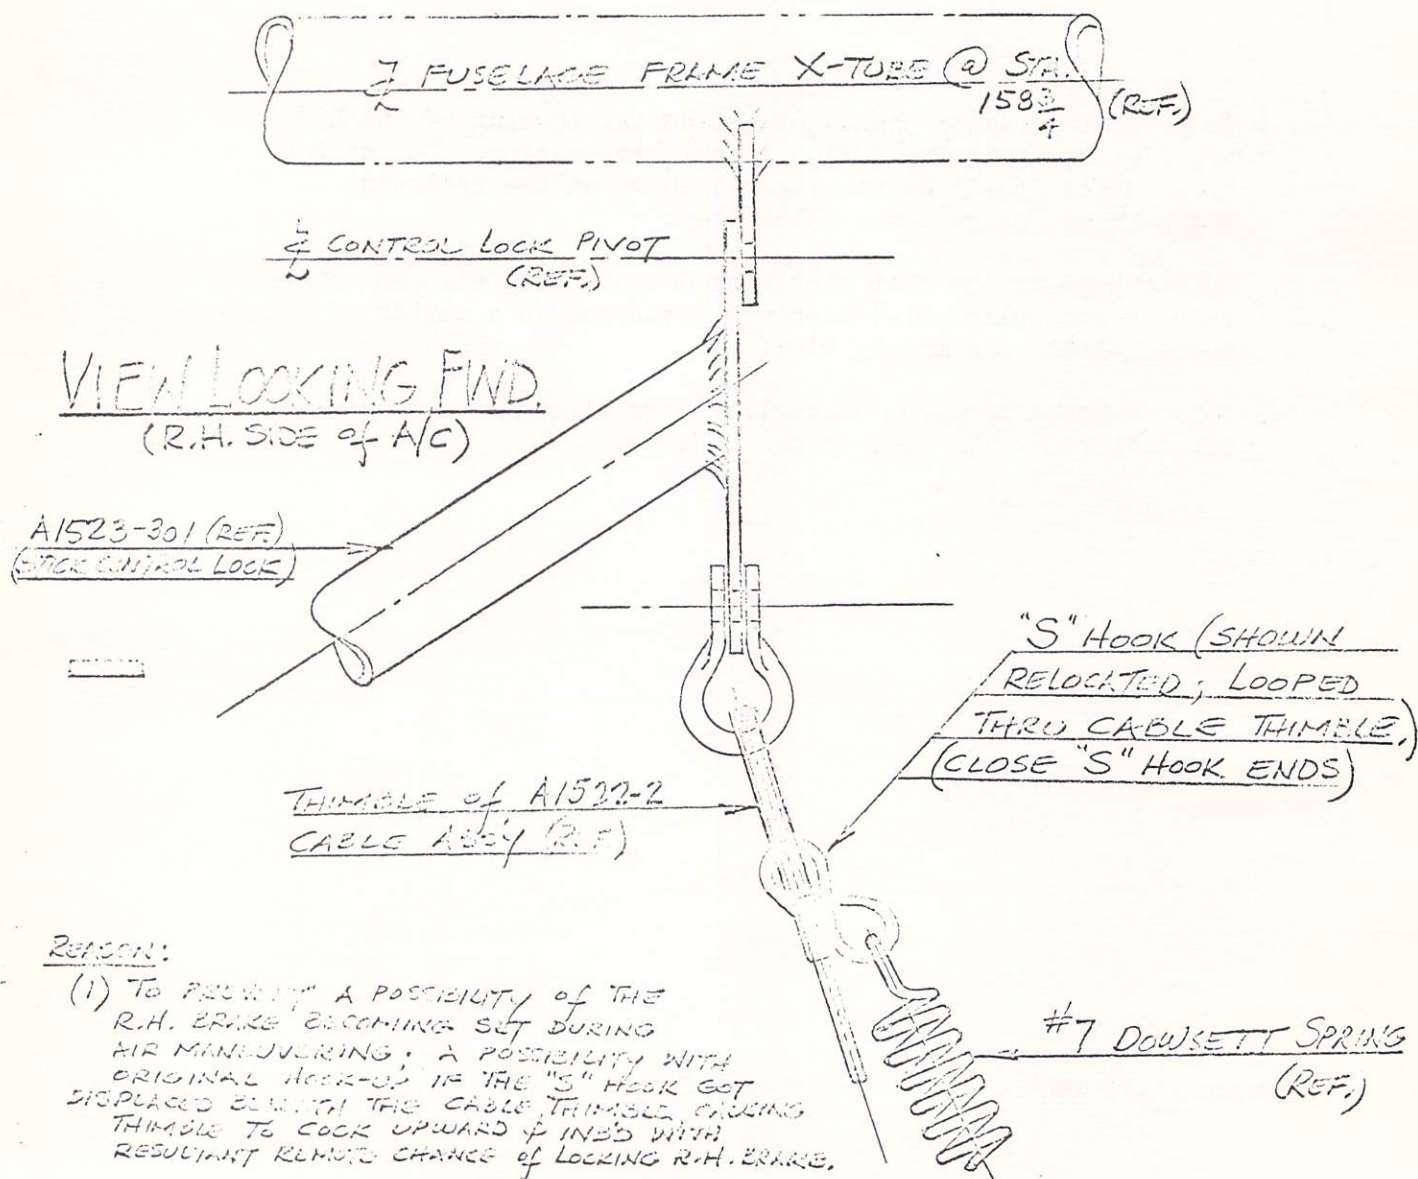 ℄ FUSELAGE FRAME X-TUBE @ STA.
158 3/4 (REF.)
℄ CONTROL LOCK PIVOT
(REF.)
VIEW LOOKING FWD.
(R.H. SIDE of A/C)
A1523-301 (REF.)
(STICK CONTROL LOCK)
"S" HOOK (SHOWN
RELOCATED; LOOPED
THRU CABLE THIMBLE.)
(CLOSE "S" HOOK ENDS)
THIMBLE of A1522-2
CABLE ASS'Y (REF.)
REASON:
(1) TO PREVENT A POSSIBILITY of THE
R.H. BRAKE BECOMING SET DURING
AIR MANEUVERING; A POSSIBILITY WITH
ORIGINAL HOOK-UP IF THE "S" HOOK GOT
DISPLACED BENEATH THE CABLE THIMBLE CAUSING
THIMBLE TO COCK UPWARD & INB'D WITH
RESULTANT REMOTE CHANCE of LOCKING R.H. BRAKE.
#7 DOWSETT SPRING
(REF.)